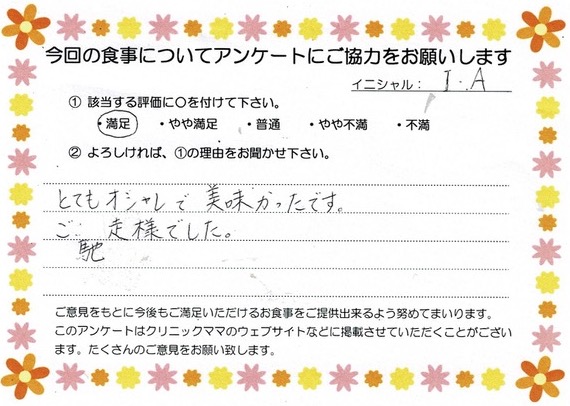 今回の食事についてアンケートにご協力をお願いします
イニシャル： I.A
① 該当する評価に〇を付けて下さい。
・満足 ・やや満足 ・普通 ・やや不満 ・不満
② よろしければ、①の理由をお聞かせ下さい。
とてもオシャレで美味かったです。
ご馳走様でした。
ご意見をもとに今後もご満足いただけるお食事をご提供出来るよう努めてまいります。
このアンケートはクリニックママのウェブサイトなどに掲載させていただくことがござい
ます。たくさんのご意見をお願い致します。